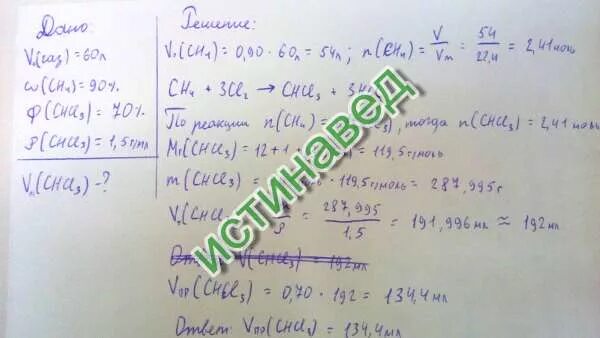 Дано:
V₁(газ) = 60л
ω(CH₄) = 90%
φ(CHCl₃) = 70%
ρ(CHCl₃) = 1,5 г/мл
Vₙ(CHCl₃) - ?
Решение:
V₁(CH₄) = 0,90 · 60л = 54л; n(CH₄) = V/Vm = 54/22,4 = 2,41 моль
CH₄ + 3Cl₂ → CHCl₃ + 3H
По реакции n(CH₄) = , тогда n(CHCl₃) = 2,41 моль
Mr(CHCl₃) = 12 + 1 + = 119,5 г/моль
m(CHCl₃) = · 119,5 г/моль = 287,995г
= 287,995/1,5 = 191,996 мл ≈ 192 мл
V(CHCl₃) = 192 мл
Vпр(CHCl₃) = 0,70 · 192 = 134,4 мл
Ответ: Vпр(CHCl₃) = 134,4 мл
ИСТИНАВЕД